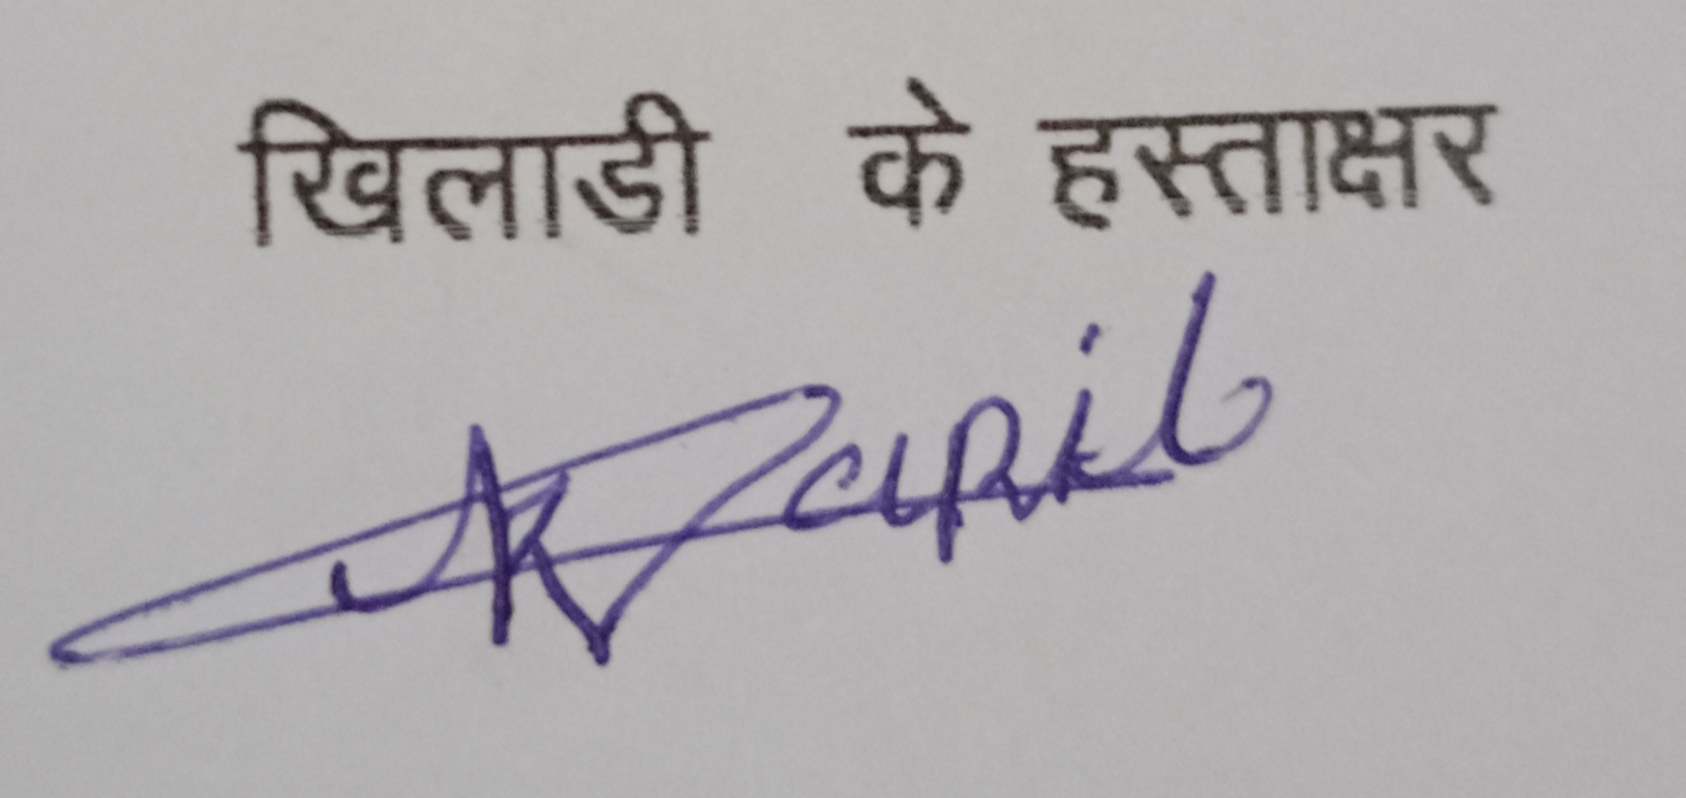 खिलाडी के हस्ताक्षर
Kapil